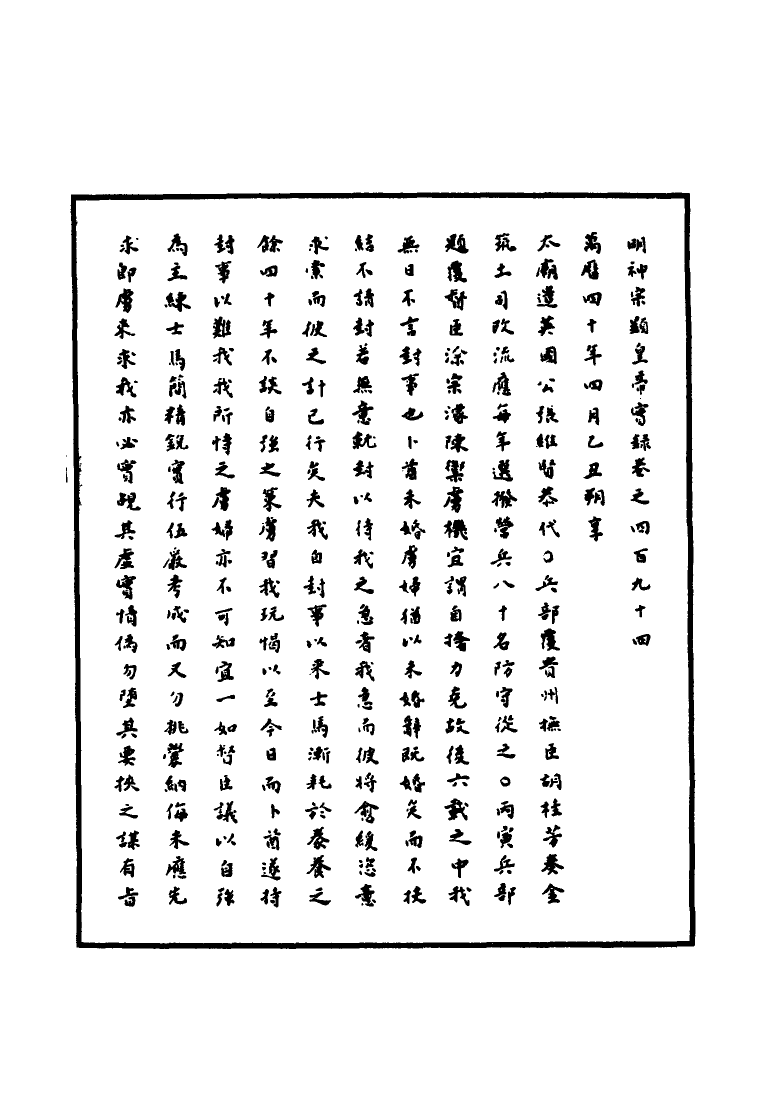 明神宗顯皇帝實錄卷之四百九十四
萬曆四十年四月乙丑朔享
太廟遣英國公張維賢恭代○兵部覆貴州撫臣胡桂芳奏金
筑土司改流應每年選撥營兵八十名防守從之○丙寅兵部
題覆督臣涂宗濬陳禦虜機宜謂自撦力克故後六載之中我
無日不言封事也卜酋未婚虜婦猶以未婚辭既婚矣而不挾
結不請封若無意就封以待我之急者我急而彼將愈緩恣意
求索而彼之計已行矣夫我自封事以來士馬漸耗於養養之
餘四十年不談自強之策虜習我玩愒以至今日而卜酋遂持
封事以難我我所恃之虜婦亦不可知宜一如督臣議以自強
為主練士馬簡精銳實行伍嚴考成而又勿挑釁納侮來應先
求即虜來求我亦必實覘其虛實情偽勿墮其要挾之謀有旨